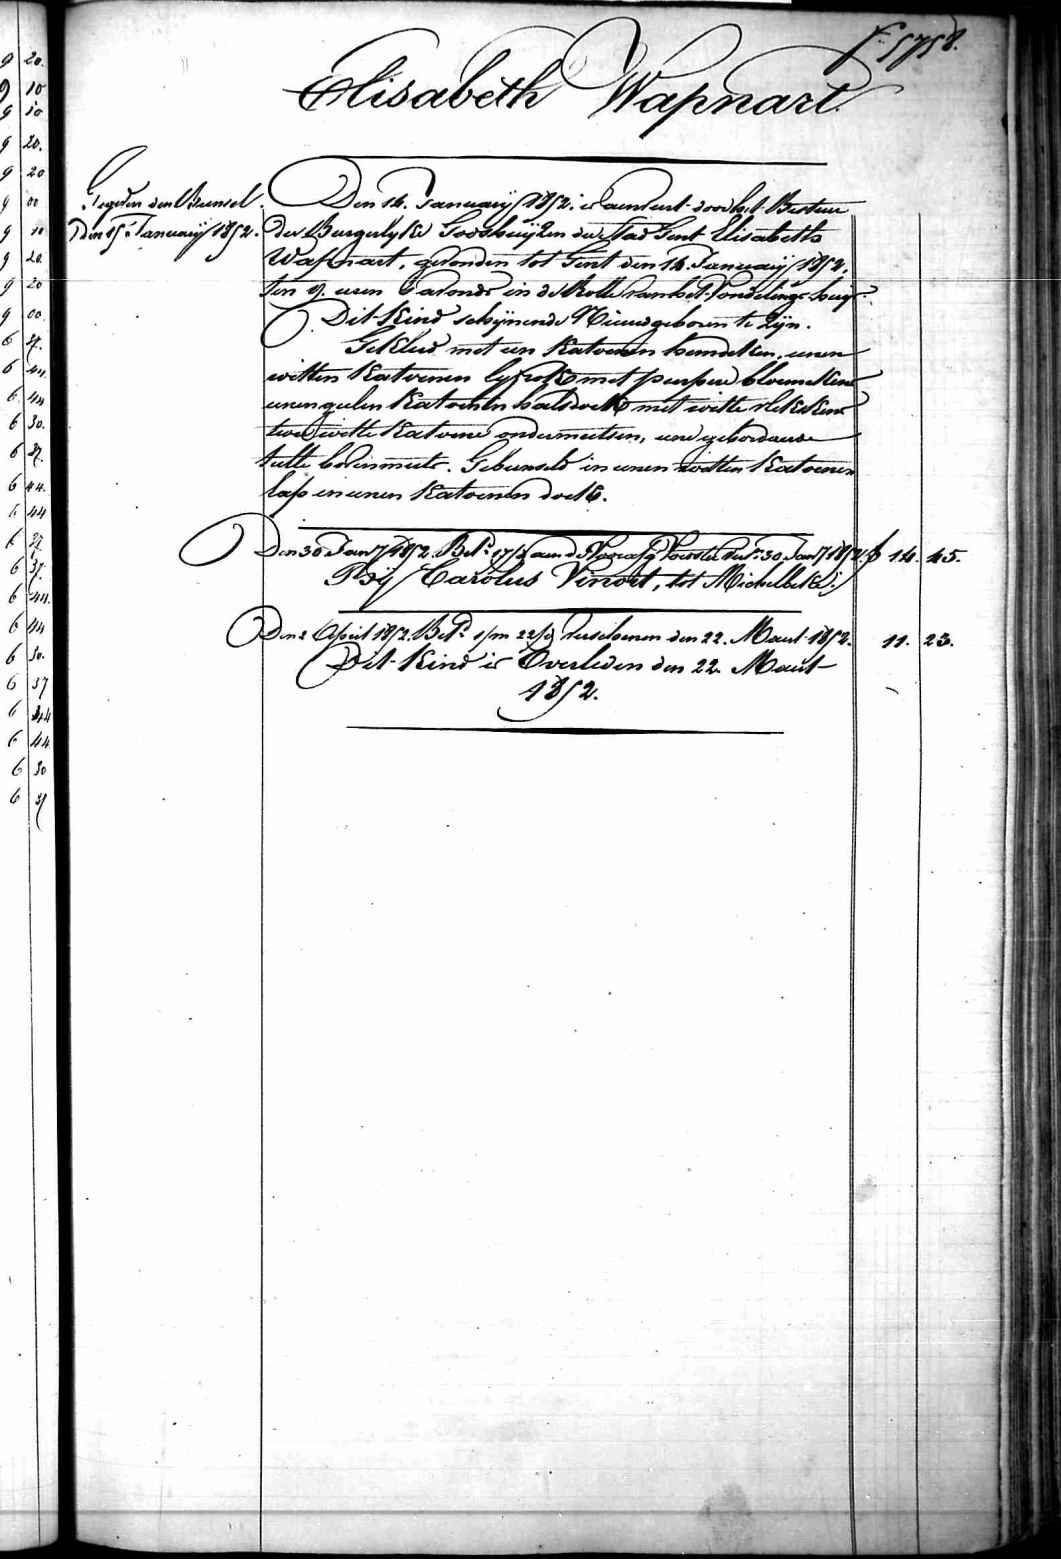 f° 5758.
Elisabeth Wapnart.
Gegeven den Bunsel
den 15 Januarij 1852.
Den 14. Januarij 1852. is aenveert door het Bestuer
der Burgerlyke Godshuijzen der Stad Gent Elisabeth
Wapnart, gevonden tot Gent den 14 Januarij 1852.
ten 9. uren 's avonds in de Rolle van het Vondelings huijs.
Dit Kind schijnende Nieuwgeboren te Zijn.
Gekleed met een Katoenen hemdeken, eenen
witten Katoenen lyfrok met purpere bloemekens
eenen geelen Katoenen halsdoek met witte plekskens
twee witte Katoene ondermutsen, eene geborduerde
tulle bovenmuts. Gebunseld in eenen witten Katoenen
lap en eenen Katoenen doek.
Den 30 Jan 1852. Bet. 17/ aen d Voorster 30. Jan 1852. f 14. 45.
Bij Carolus Vinort, tot Michelbeke.
Den 2 April 1852. Bet. 22/ verschenen den 22. Maert 1852. 11. 23.
Dit Kind is Overleden den 22. Maert
1852.
9 20.
9 10
9 10
9 20.
9 20
9 00
9 10
9 20.
9 20
9 00.
6 37.
6 44.
6 44
6 30.
6 37.
6 44.
6 44
6 37
6 37.
6 44.
6 44
6 30.
6 37
6 44
6 44
6 30
6 37